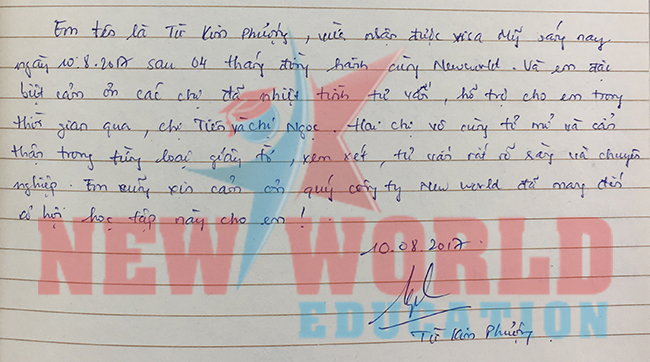 Em tên là Từ Kim Phượng, vừa nhận được visa Mỹ sáng nay
ngày 10.8.2017 sau 04 tháng đồng hành cùng Newworld. Và em đặc
biệt cảm ơn các chị đã nhiệt tình tư vấn, hỗ trợ cho em trong
thời gian qua, chị Tiên và chị Ngọc. Hai chị vô cùng tỉ mỉ và cẩn
thận trong từng loại giấy tờ, xem xét, tư vấn rất rõ ràng và chuyên
nghiệp. Em cũng xin cảm ơn quý công ty New world đã mang đến
cơ hội học tập này cho em!
10.08.2017.
Từ Kim Phượng
NEW WORLD
EDUCATION